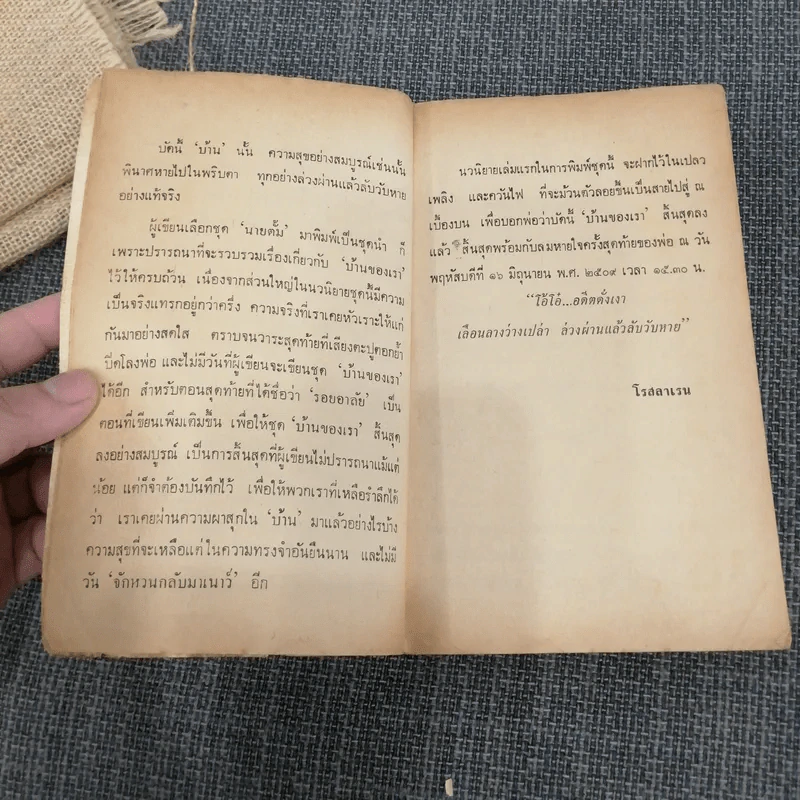 บัดนี้ ‘บ้าน’ นั้น ความสุขอย่างสมบูรณ์เช่นนั้น
พินาศหายไปในพริบตา ทุกอย่างล่วงผ่านแล้วลับวับหาย
อย่างแท้จริง
ผู้เขียนเลือกชุด ‘นายตั้ม’ มาพิมพ์เป็นชุดนำ ก็
เพราะปรารถนาที่จะรวบรวมเรื่องเกี่ยวกับ ‘บ้านของเรา’
ไว้ให้ครบถ้วน เนื่องจากส่วนใหญ่ในนวนิยายชุดนี้มีความ
เป็นจริงแทรกอยู่กว่าครึ่ง ความจริงที่เราเคยหัวเราะให้แก่
กันมาอย่างสดใส ตราบจนวาระสุดท้ายที่เสียงตะปูตอกย้ำ
ปิดโลงพ่อ และไม่มีวันที่ผู้เขียนจะเขียนชุด ‘บ้านของเรา’
ได้อีก สำหรับตอนสุดท้ายที่ได้ชื่อว่า ‘รอยอาลัย’ เป็น
ตอนที่เขียนเพิ่มเติมขึ้น เพื่อให้ชุด ‘บ้านของเรา’ สิ้นสุด
ลงอย่างสมบูรณ์ เป็นการสิ้นสุดที่ผู้เขียนไม่ปรารถนาแม้แต่
น้อย แต่ก็จำต้องบันทึกไว้ เพื่อให้พวกเราที่เหลือรำลึกได้
ว่า เราเคยผ่านความผาสุกใน ‘บ้าน’ มาแล้วอย่างไรบ้าง
ความสุขที่จะเหลือแต่ในความทรงจำอันยืนนาน และไม่มี
วัน ‘จักหวนกลับมาเนาว์’ อีก
นวนิยายเล่มแรกในการพิมพ์ชุดนี้ จะฝากไว้ในเปลว
เพลิง และควันไฟ ที่จะม้วนตัวลอยขึ้นเป็นสายไปสู่ ณ
เบื้องบน เพื่อบอกพ่อว่าบัดนี้ ‘บ้านของเรา’ สิ้นสุดลง
แล้ว สิ้นสุดพร้อมกับลมหายใจครั้งสุดท้ายของพ่อ ณ วัน
พฤหัสบดีที่ ๑๖ มิถุนายน พ.ศ. ๒๕๐๙ เวลา ๑๕.๓๐ น.
“โอ้โอ๋...อดีตดั่งเงา
เลือนลางว่างเปล่า ล่วงผ่านแล้วลับวับหาย”
โรสลาเรน